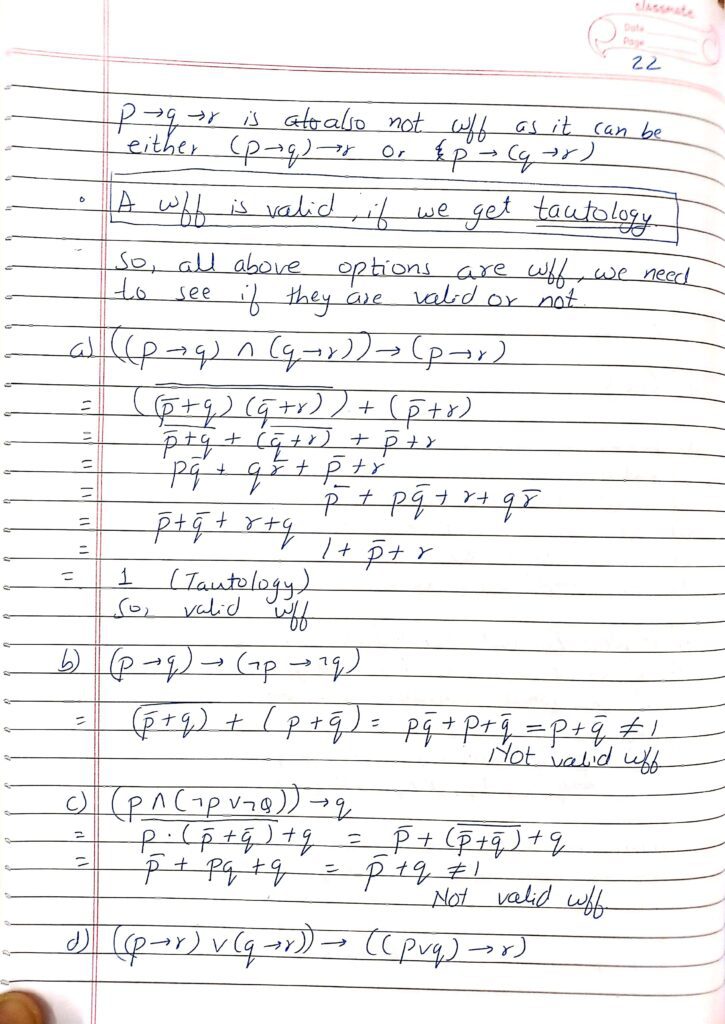 classmate
Date
Page
22
p→q→r is also not wff as it can be
either (p→q)→r or p→(q→r)
A wff is valid, if we get tautology.
So, all above options are wff, we need
to see if they are valid or not.
a) ((p→q) ∧ (q→r))→(p→r)
= ( \overline{(p̄+q)(q̄+r)} ) + (p̄+r)
= \overline{p̄+q} + \overline{(q̄+r)} + p̄+r
= pq̄ + qr̄ + p̄+r
= p̄ + pq̄ + r + qr̄
= p̄+q̄ + r+q
= 1 + p̄ + r
= 1 (Tautology)
So, valid wff
b) (p→q)→(¬p→¬q)
= \overline{(p̄+q)} + (p+q̄) = pq̄+p+q̄ = p+q̄ ≠1
Not valid wff
c) (p∧(¬p∨¬q))→q
= \overline{p·(p̄+q̄)}+q = p̄+\overline{(p̄+q̄)}+q
= p̄ + pq +q = p̄+q ≠1
Not valid wff.
d) ((p→r)∨(q→r))→((p∨q)→r)